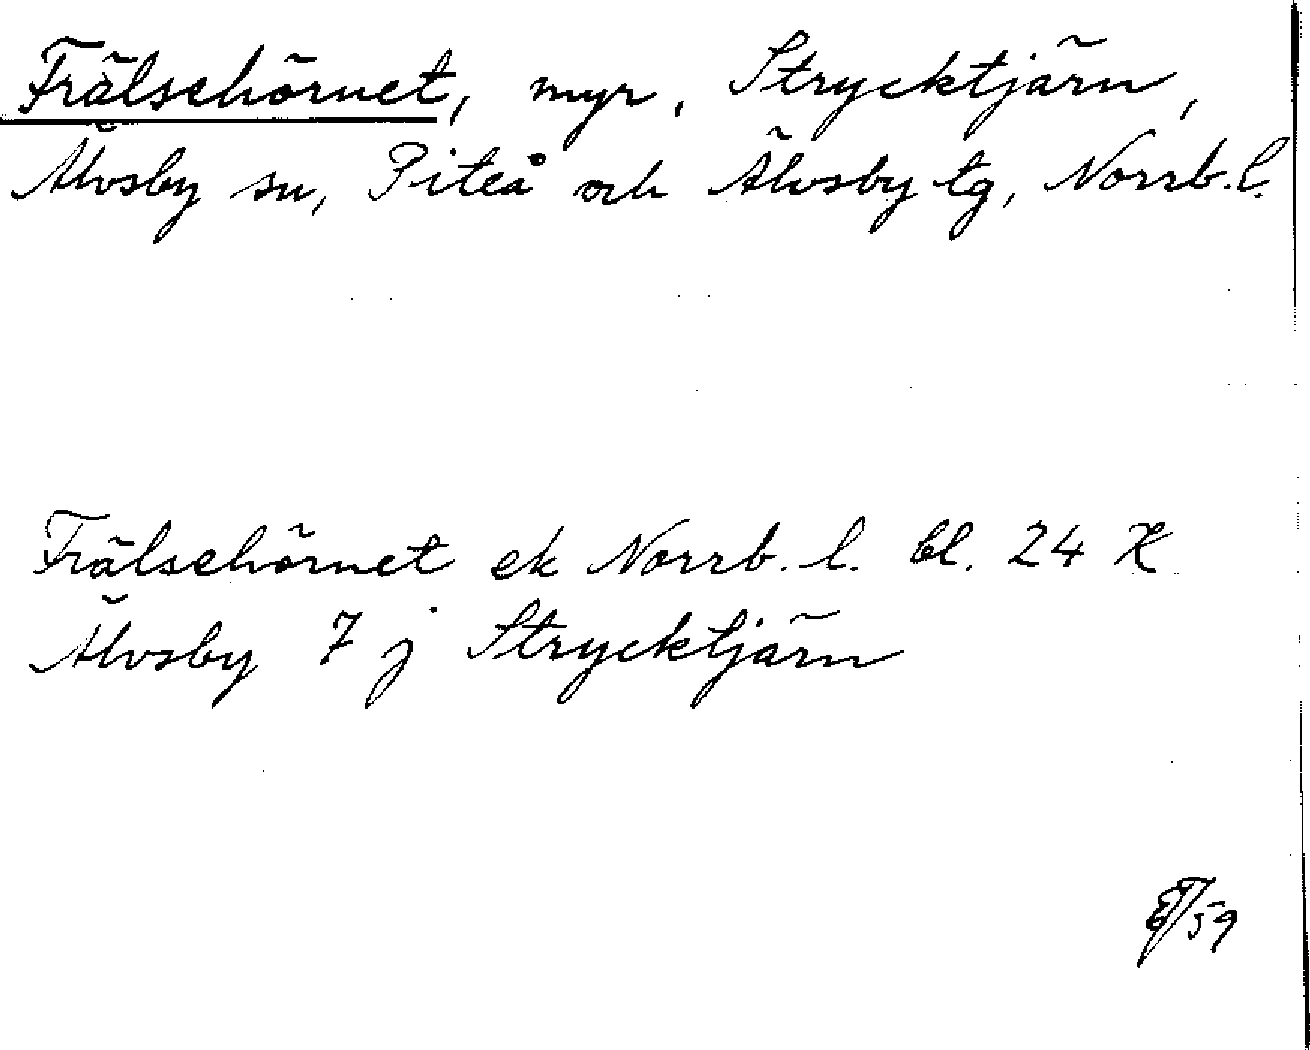 Frälsehörnet, myr, Strycktjärn,
Älvsby sn, Piteå och Älvsby tg, Norrb. l.
Frälsehörnet ek Norrb. l. bl. 24 K
Älvsby 7 j Strycktjärn
/59